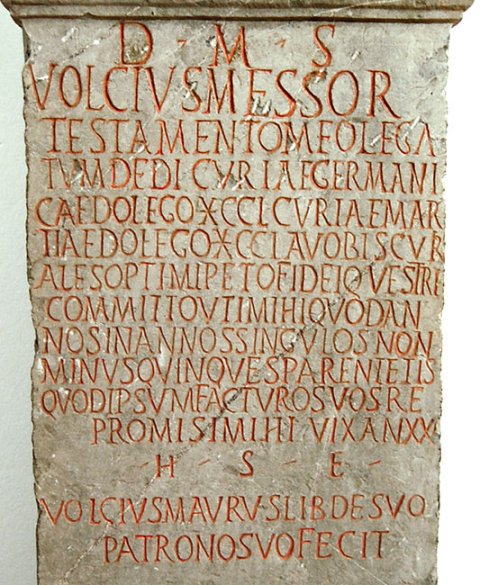 D · M · S
VOLCIVSMESSOR
TESTAMENTOMEOLEGA
TVMDEDICVRIAEGERMANI
CAEDOLEGOXCCLCVRIAEMAR
TIAEDOLEGOXCCLAVOBISCVR
ALESOPTIMIPETOFIDEIQVESTRE
COMMITTOVTIMIHIQVODAN
NOSINANNOSSINGVLOSNON
MINVSQVINQVESPARENTETIS
QVODIPSVMFACTVROSVOSRE
PROMISIMIHI VIXANXX
- H - S - E -
VOLCIVSMAVRVSLIBDESVO
PATRONOSVOFECIT